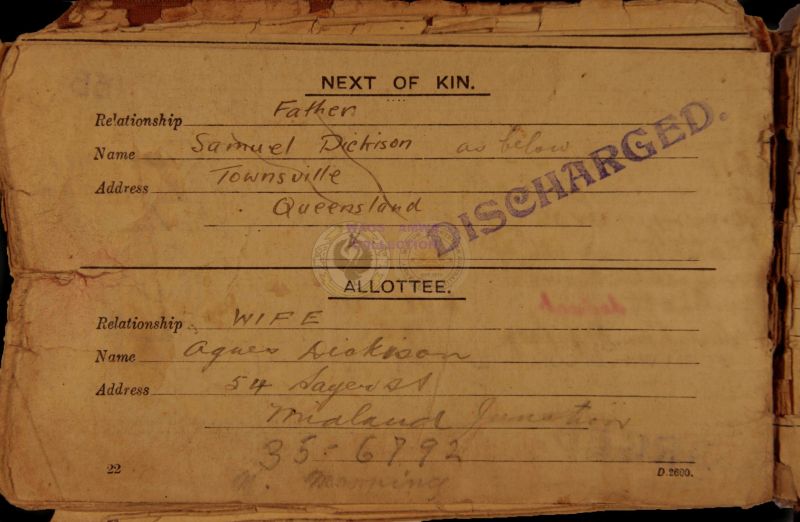 NEXT OF KIN.
Relationship Father
Name Samuel Dickison as below
Address Townsville
Queensland
DISCHARGED.
WAGS ARMY
COLLECTION
ALLOTTEE.
Relationship WIFE
Name Agnes Dickison
Address 54 Sayer St
Midland Junction
35-6792
22 D.2600.